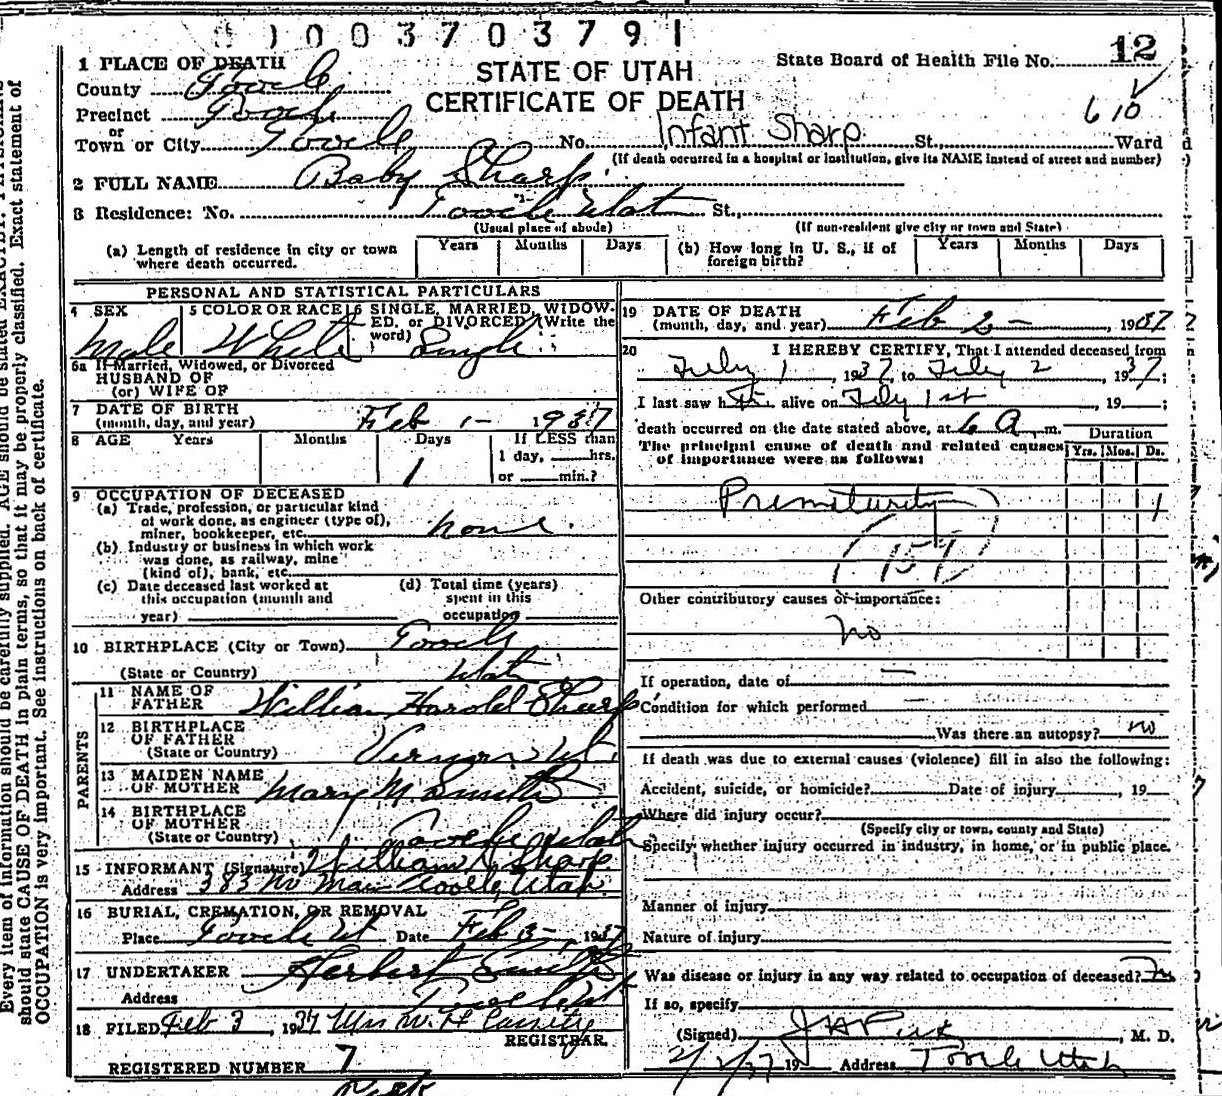 0 0 0 3 7 0 3 7 9 1
12
State Board of Health File No.
STATE OF UTAH
CERTIFICATE OF DEATH
610
1 PLACE OF DEATH
County Tooele
Precinct Tooele
or
Town or City Tooele No. Infant Sharp St., Ward
(If death occurred in a hospital or institution, give its NAME instead of street and number)
2 FULL NAME Baby Sharp
3 Residence: No. Tooele Utah St.,
(Usual place of abode) (If non-resident give city or town and State)
(a) Length of residence in city or town where death occurred. Years Months Days
(b) How long in U. S., if of foreign birth? Years Months Days
PERSONAL AND STATISTICAL PARTICULARS
4 SEX Male
5 COLOR OR RACE White
6 SINGLE, MARRIED, WIDOWED, or DIVORCED (Write the word) Single
6a If Married, Widowed, or Divorced
HUSBAND OF
(or) WIFE OF
7 DATE OF BIRTH
(month, day, and year) Feb 1 - 1937
8 AGE Years Months Days If LESS than
1 1 day, hrs.
or min.?
9 OCCUPATION OF DECEASED
(a) Trade, profession, or particular kind
of work done, as engineer (type of),
miner, bookkeeper, etc. none
(b) Industry or business in which work
was done, as railway, mine
(kind of), bank, etc.
(c) Date deceased last worked at
this occupation (month and
year)
(d) Total time (years)
spent in this
occupation
10 BIRTHPLACE (City or Town) Tooele
(State or Country) Utah
PARENTS
11 NAME OF FATHER William Harold Sharp
12 BIRTHPLACE OF FATHER
(State or Country) Vernon Ut.
13 MAIDEN NAME OF MOTHER Mary M. Smith
14 BIRTHPLACE OF MOTHER
(State or Country) Tooele Utah
15 INFORMANT (Signature) William Sharp
Address 383 No Main Tooele, Utah
16 BURIAL, CREMATION, OR REMOVAL
Place Tooele Ut Date Feb 1937
17 UNDERTAKER Herbert Smith
Address Tooele Utah
18 FILED Feb 3, 1937 Mrs W. H. Cassity
REGISTRAR.
REGISTERED NUMBER 7
19 DATE OF DEATH
(month, day, and year) Feb 2 - , 1937
20 I HEREBY CERTIFY, That I attended deceased from
July 1, 1937, to July 2, 1937;
I last saw h alive on July 1st, 19 ;
death occurred on the date stated above, at 6 A. m.
The principal cause of death and related causes
of importance were as follows:
Duration
Yrs. Mos. Ds.
Prematurity 1
(159)
Other contributory causes of importance:
no
If operation, date of —
Condition for which performed —
Was there an autopsy? no
If death was due to external causes (violence) fill in also the following:
Accident, suicide, or homicide? Date of injury , 19
Where did injury occur?
(Specify city or town, county and State)
Specify whether injury occurred in industry, in home, or in public place.
Manner of injury
Nature of injury
Was disease or injury in any way related to occupation of deceased? no
If so, specify
(Signed) J H Peck, M. D.
2/2/37 19 Address Tooele Utah
Every item of information should be carefully supplied. AGE should be stated EXACTLY. PHYSICIANS
should state CAUSE OF DEATH in plain terms, so that it may be properly classified. Exact statement of
OCCUPATION is very important. See instructions on back of certificate.